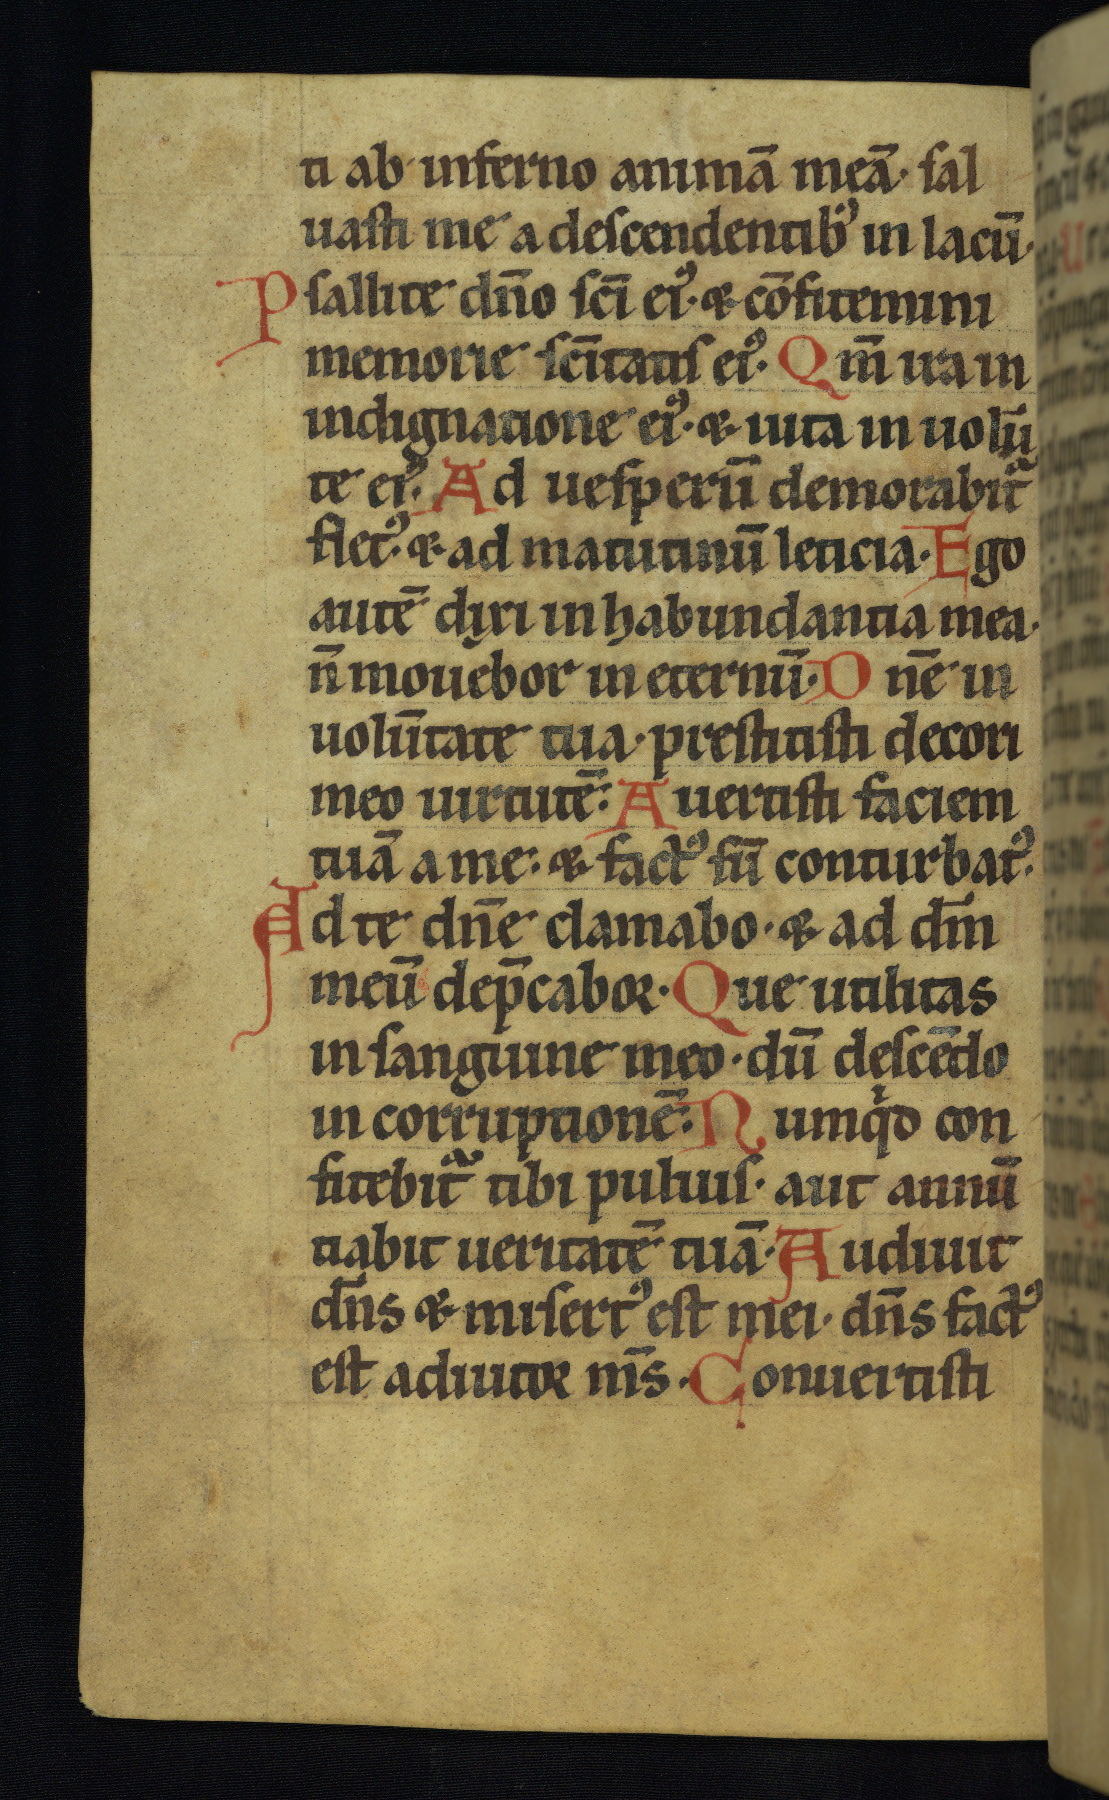 ti ab inferno animā meā· sal
uasti me a descendentib᷒ in lacū·
Psallite dn̄o sc̄i ei᷒· & cōfitemini
memorie sc̄itatis ei᷒· Qm̄ ira in
indignatione ei᷒· & uita in uolū
te ei᷒· Ad uesperū demorabitᷓ
flet᷒· & ad matutinū leticia· Ego
autē dixi in habundantia mea·
n̄ mouebor in eternū· Dn̄e in
uolūtate tua· prestitisti decori
meo uirtutē: Auertisti faciem
tuā a me: & fact᷒ sū conturbat᷒·
Ad te dn̄e clamabo· & ad dm̄
meū dep̄cabor· Que utilitas
in sanguine meo· dū descēdo
in corruptionē: Numqͥd con
fitebitᷓ tibi puluis· aut annū
tiabit ueritatē tuā· Audiuit
dn̄s & misert᷒ est mei· dn̄s fact᷒
est adiutor m̄s· Conuertisti